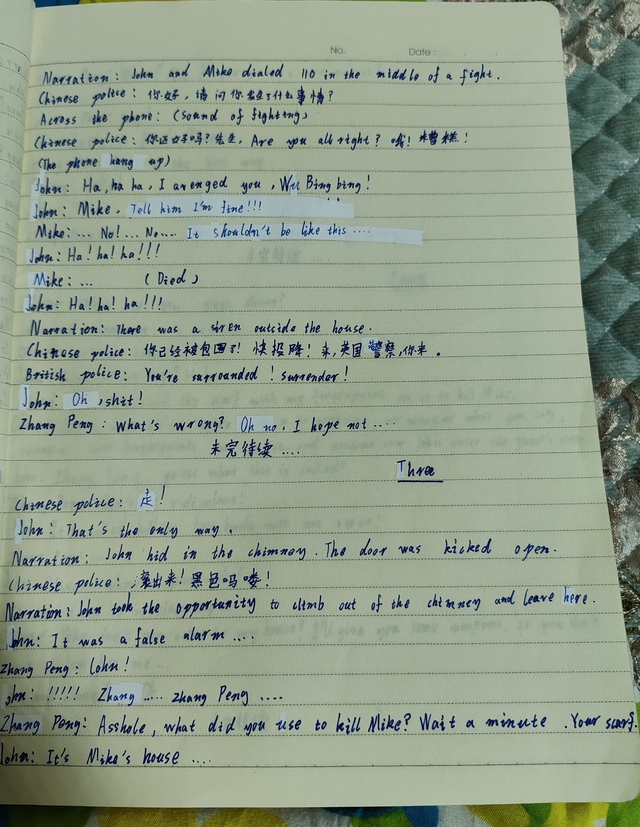 No.    Date:
Narration: John and Mike dialed 110 in the middle of a fight.
Chinese police: 你好，请问你发生了什么事情?
Across the phone: (sound of fighting)
Chinese police: 你还好吗? 先生, Are you all right? 哦! 糟糕!
(The phone hang up)
John: Ha, ha ha, I avenged you, Wu Bing bing!
John: Mike, Tell him I'm fine!!!
Mike: ... No! ... No... It shouldn't be like this ....
John: Ha! ha! ha!!!
Mike: ... (Died)
John: Ha! ha! ha!!!
Narration: There was a siren outside the house.
Chinese police: 你已经被包围了! 快投降! 来,英国警察,你来。
British police: You're surrounded! surrender!
John: Oh, shit!
Zhang Peng: What's wrong? Oh no, I hope not ....
未完待续 ....
Three
Chinese police: 走!
John: That's the only way.
Narration: John hid in the chimney. The door was kicked open.
Chinese police: 滚出来! 黑色吗喽!
Narration: John took the opportunity to climb out of the chimney and leave here.
John: It was a false alarm ....
Zhang Peng: John!
John: !!!!! Zhang .... Zhang Peng ....
Zhang Peng: Asshole, what did you use to kill Mike? Wait a minute. Your scarf.
John: It's Mike's house ....